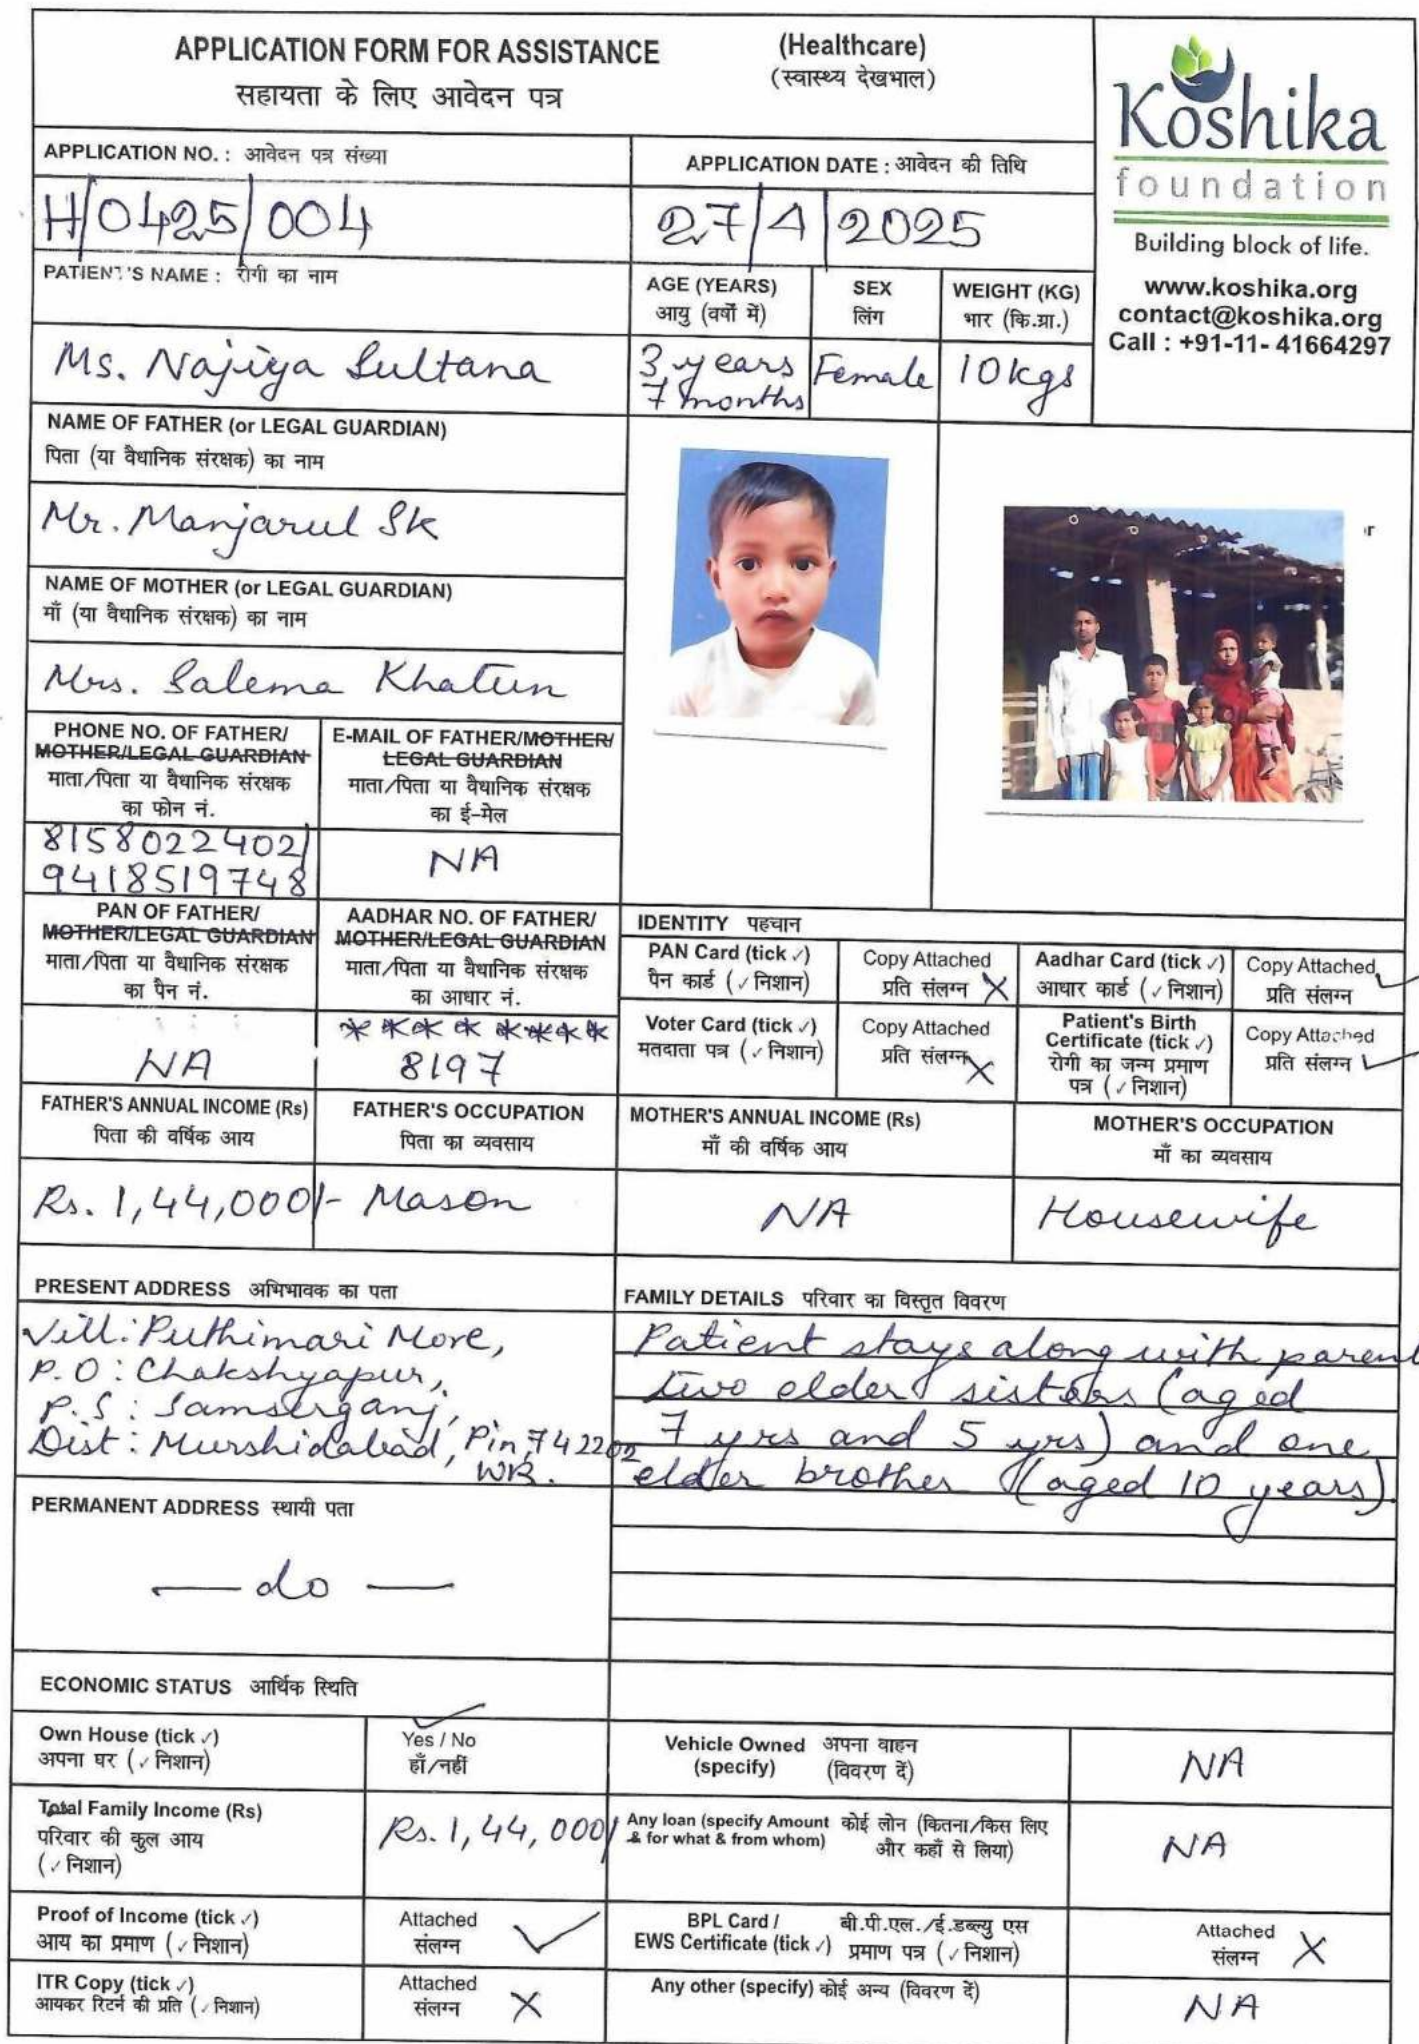 APPLICATION FORM FOR ASSISTANCE (Healthcare)
सहायता के लिए आवेदन पत्र (स्वास्थ्य देखभाल)
Koshika
foundation
Building block of life.
www.koshika.org
contact@koshika.org
Call : +91-11- 41664297
APPLICATION NO. : आवेदन पत्र संख्या
APPLICATION DATE : आवेदन की तिथि
H/0425/004
27/4/2025
PATIENT'S NAME : रोगी का नाम
AGE (YEARS)
आयु (वर्षों में)
SEX
लिंग
WEIGHT (KG)
भार (कि.ग्रा.)
Ms. Najiya Sultana
3 years
7 months
Female
10 kgs
NAME OF FATHER (or LEGAL GUARDIAN)
पिता (या वैधानिक संरक्षक) का नाम
Mr. Manjarul Sk
NAME OF MOTHER (or LEGAL GUARDIAN)
माँ (या वैधानिक संरक्षक) का नाम
Mrs. Salema Khatun
PHONE NO. OF FATHER/
MOTHER/LEGAL GUARDIAN
माता/पिता या वैधानिक संरक्षक
का फोन नं.
E-MAIL OF FATHER/MOTHER/
LEGAL GUARDIAN
माता/पिता या वैधानिक संरक्षक
का ई-मेल
8158022402/
9418519748
NA
PAN OF FATHER/
MOTHER/LEGAL GUARDIAN
माता/पिता या वैधानिक संरक्षक
का पैन नं.
AADHAR NO. OF FATHER/
MOTHER/LEGAL GUARDIAN
माता/पिता या वैधानिक संरक्षक
का आधार नं.
NA
********
8197
IDENTITY पहचान
PAN Card (tick ✓)
पैन कार्ड (✓ निशान)
Copy Attached
प्रति संलग्न X
Aadhar Card (tick ✓)
आधार कार्ड (✓ निशान)
Copy Attached
प्रति संलग्न ✓
Voter Card (tick ✓)
मतदाता पत्र (✓ निशान)
Copy Attached
प्रति संलग्न X
Patient's Birth
Certificate (tick ✓)
रोगी का जन्म प्रमाण
पत्र (✓ निशान)
Copy Attached
प्रति संलग्न ✓
FATHER'S ANNUAL INCOME (Rs)
पिता की वर्षिक आय
FATHER'S OCCUPATION
पिता का व्यवसाय
MOTHER'S ANNUAL INCOME (Rs)
माँ की वर्षिक आय
MOTHER'S OCCUPATION
माँ का व्यवसाय
Rs. 1,44,000/-
Mason
NA
Housewife
PRESENT ADDRESS अभिभावक का पता
Vill: Puthimari More,
P.O: Chakshyapur,
P.S: Samserganj,
Dist: Murshidabad, Pin, 742202
WB.
FAMILY DETAILS परिवार का विस्तृत विवरण
Patient stays along with parent
two elder sisters (aged
7 yrs and 5 yrs) and one
elder brother (aged 10 years).
PERMANENT ADDRESS स्थायी पता
— do —
ECONOMIC STATUS आर्थिक स्थिति
Own House (tick ✓)
अपना घर (✓ निशान)
✓
Yes / No
हाँ/नहीं
Vehicle Owned अपना वाहन
(specify) (विवरण दें)
NA
Total Family Income (Rs)
परिवार की कुल आय
(✓ निशान)
Rs. 1,44,000/
Any loan (specify Amount कोई लोन (कितना/किस लिए
& for what & from whom) और कहाँ से लिया)
NA
Proof of Income (tick ✓)
आय का प्रमाण (✓ निशान)
Attached
संलग्न ✓
BPL Card / बी.पी.एल./ई.डब्ल्यु एस
EWS Certificate (tick ✓) प्रमाण पत्र (✓ निशान)
Attached
संलग्न X
ITR Copy (tick ✓)
आयकर रिटर्न की प्रति (✓ निशान)
Attached
संलग्न X
Any other (specify) कोई अन्य (विवरण दें)
NA